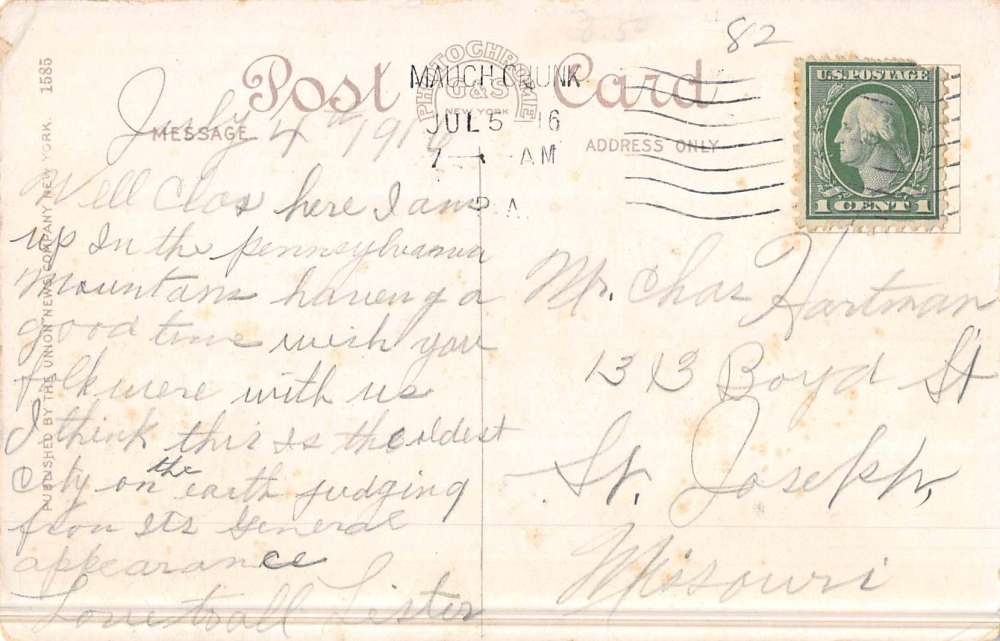 82
Post Card
PHOTOCHROME
U&S
NEW YORK
MAUCH CHUNK
JUL 5 16
7 AM
MESSAGE
ADDRESS ONLY
U.S. POSTAGE
1 CENT 1
PUBLISHED BY THE UNION NEWS COMPANY, NEW YORK. 1585
July 4th 1916
Well Chas here I am
up In the pennsylvania
Mountans haveng a
good time wish you
folk were with us
I think this Is the oldest
City on the earth judging
from Its General
appearance
Love to all Sister
Mr. Chas Hartman
1313 Boyd St
St. Joseph,
Missouri